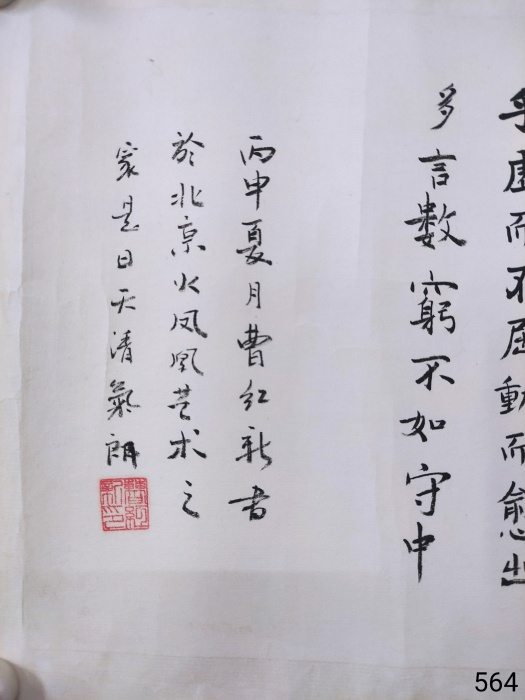 乎虚而不屈動而愈出
多言數窮不如守中
丙申夏月曹红新書
於北京火凤凰艺术之
家是日天清氣朗
曹红新印
564